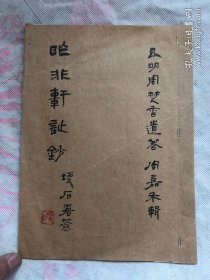 昆明周楚香遺著 周嘉輯
昨非軒詩鈔
石署簽
孔夫子旧书网